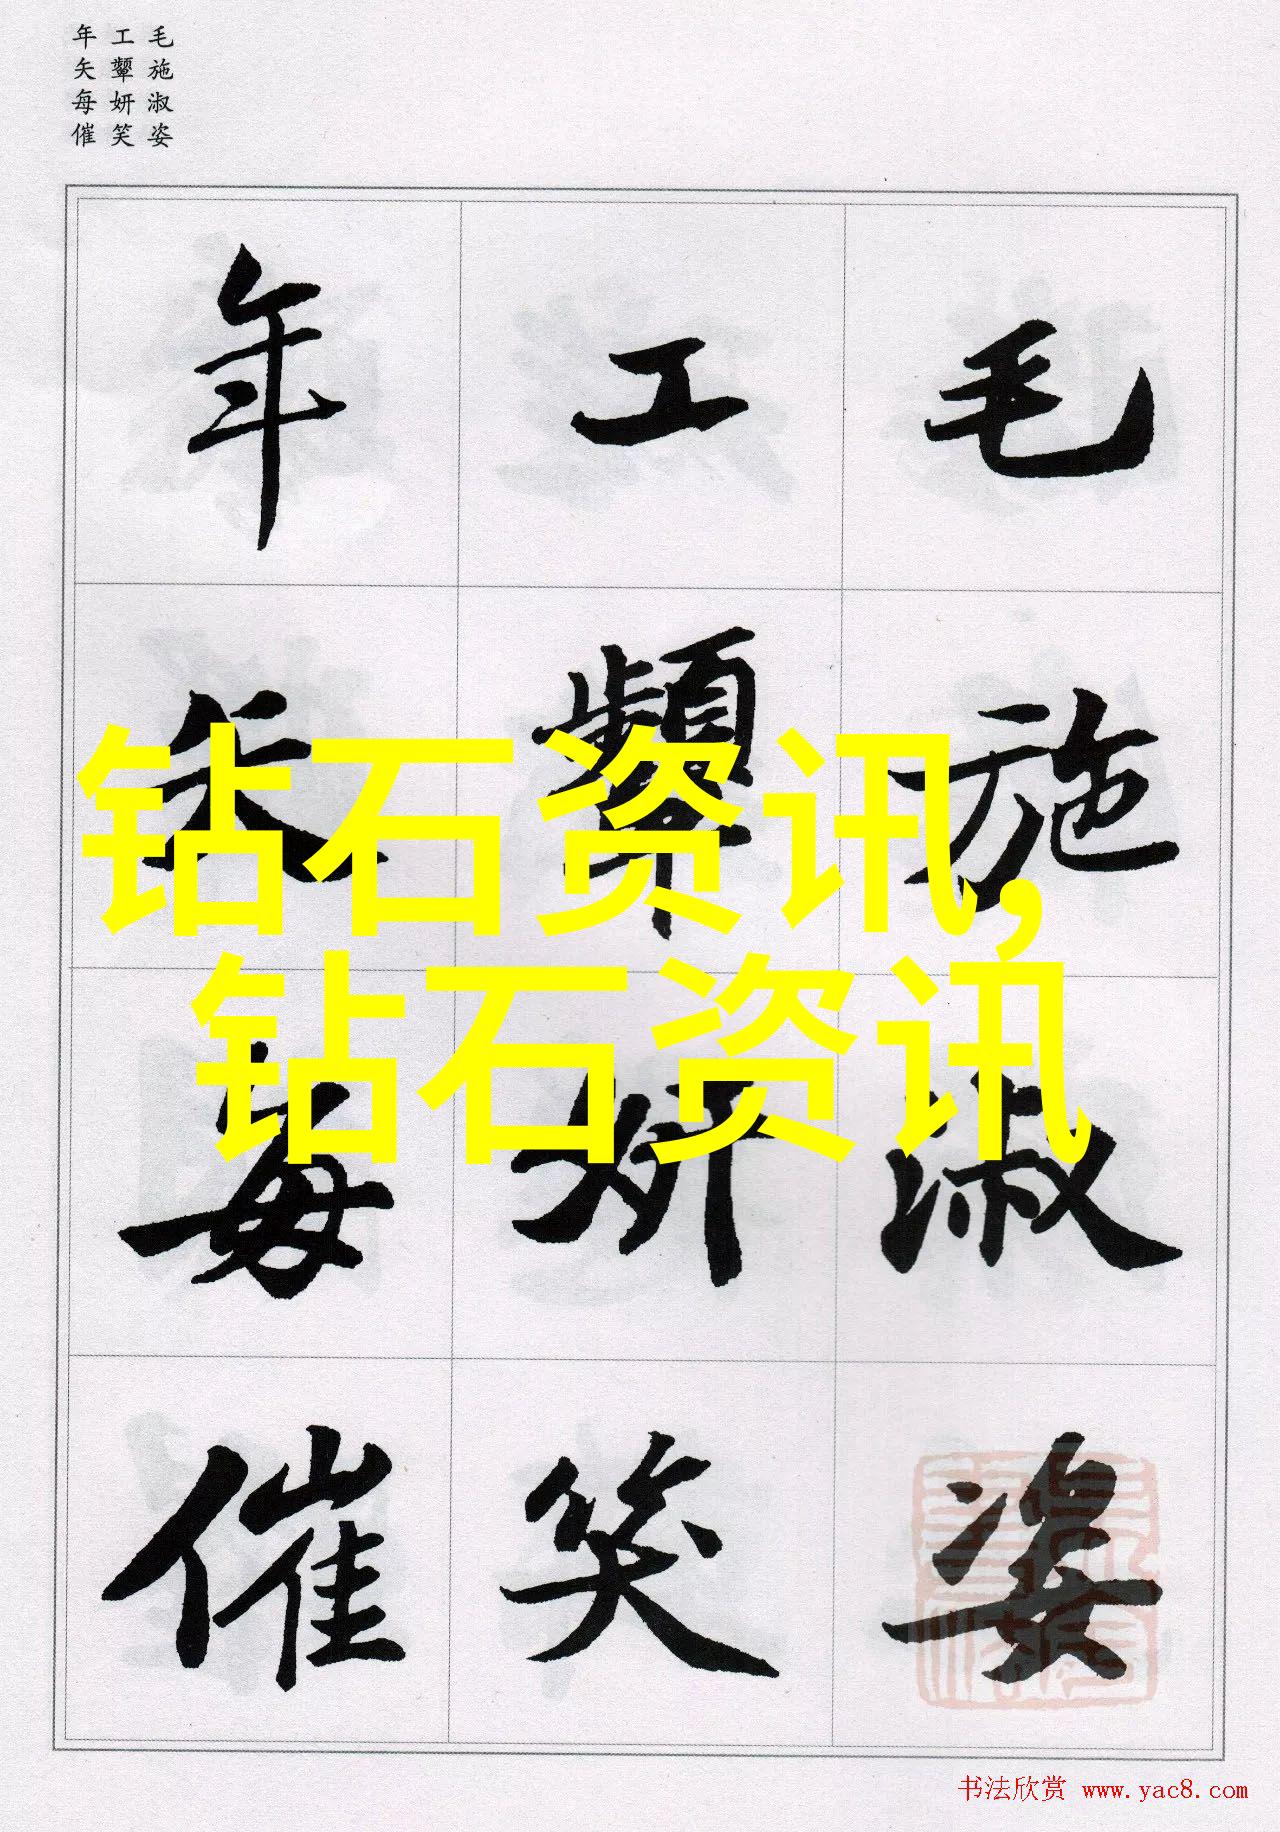 年工毛
矢顰施
每妍淑
催笑姿
年工毛
矢顰施
每妍淑
催笑姿
钻石资讯,
钻石资讯
书法欣赏 www.yac8.com